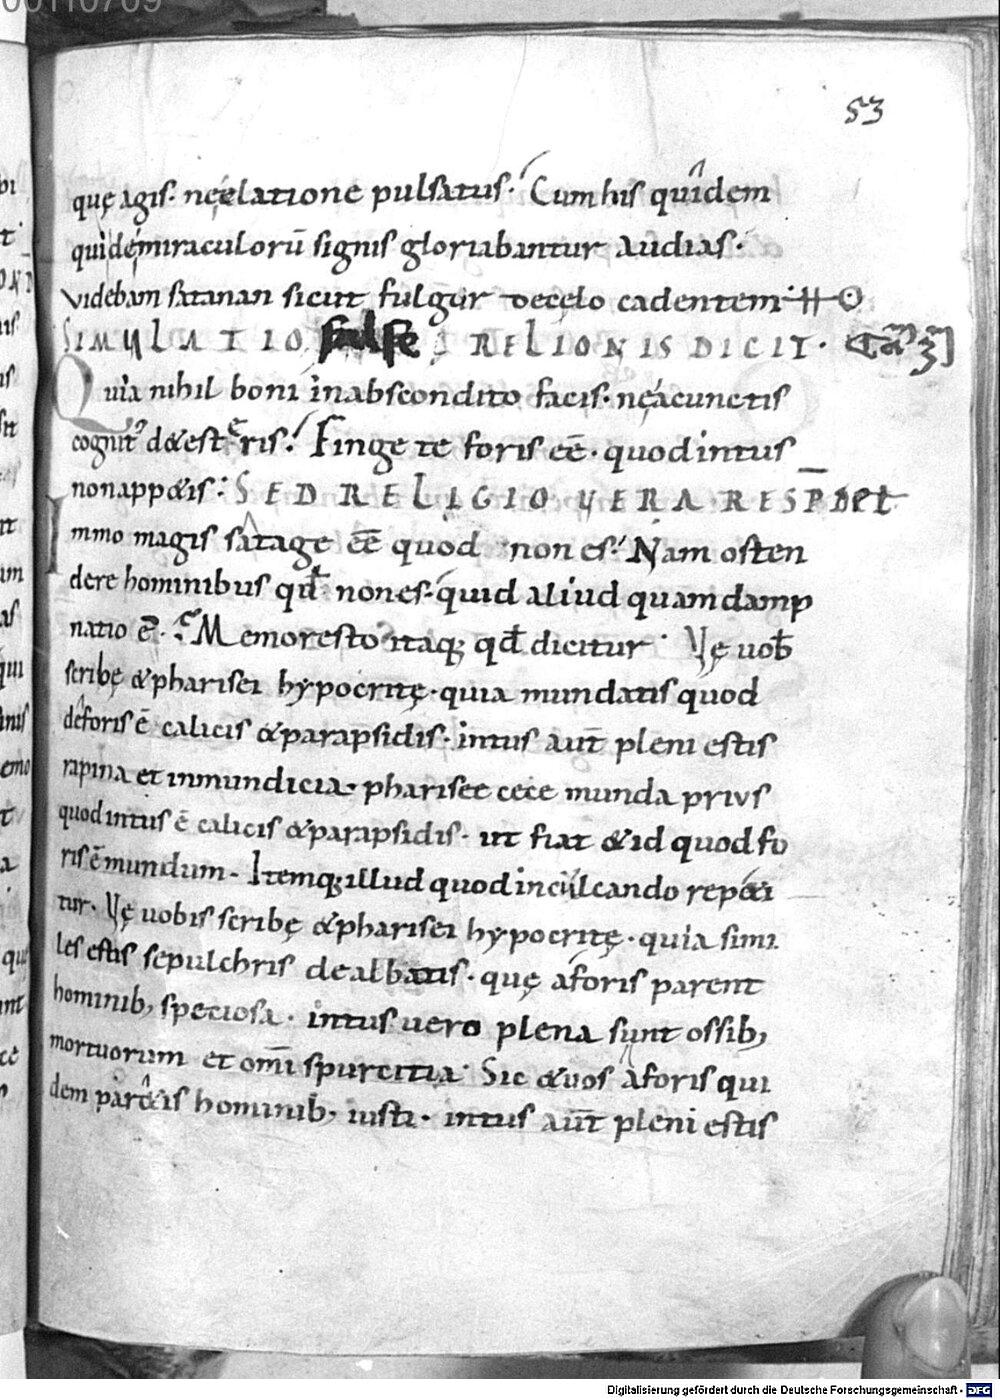 00110709
53
quę agis· ne elatione pulsatus· Cum his quidem
quidē miraculorū signis gloriabantur audias·
videbam satanan sicut fulgur decelo cadentem·
SIMULATIO false RELIONIS DICIT·
Quia nihil boni inabscondito facis· ne a cunctis
cognit' d&esteris· Finge te foris eē· quod intus
non app&is· SED RELIGIO VERA RESPD&
Immo magis satage eē quod non es· Nam osten
dere hominibus qđ non es· quid aliud quam damp
natio ē· Memoresto itaq; qđ dicitur· Vę uob
scribę & pharisei hypocritę· quia mundatis quod
deforis ē calicis & parapsidis· intus aūt pleni estis
rapina et inmundicia· pharisee cece munda prius
quod intus ē calicis & parapsidis· ut fiat & id quod fo
ris ē mundum· Itemq; illud quod inculcando repeti
tur· Vę uobis scribę & pharisei hypocritę· quia simi
les estis sepulchris dealbatis· quę aforis parent
hominib; speciosa· intus uero plena sunt ossib;
mortuorum et omī spurcitia· Sic & uos aforis qui
dem par&is hominib; iusti· intus aūt pleni estis
Digitalisierung gefördert durch die Deutsche Forschungsgemeinschaft - DFG